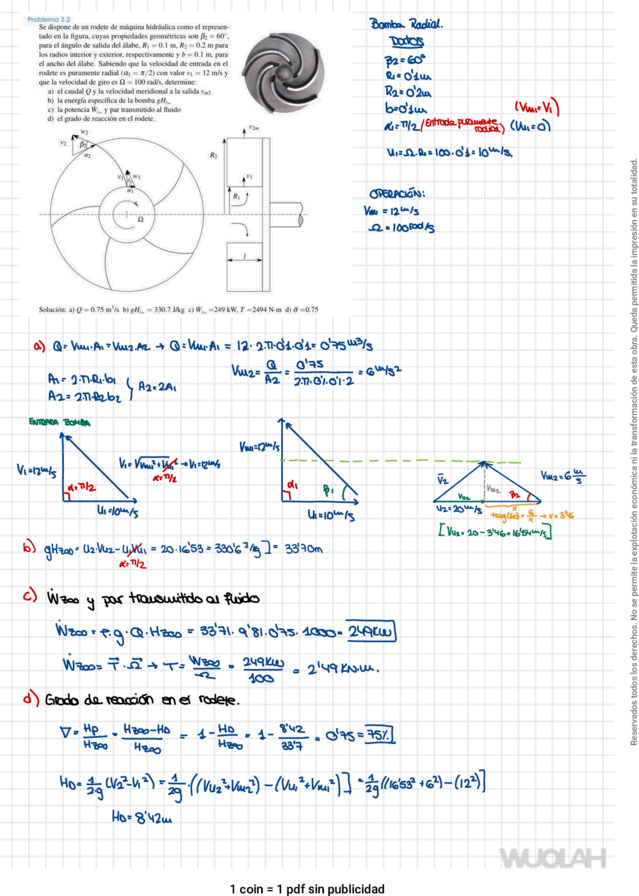 Problema 3.2
Se dispone de un rodete de máquina hidráulica como el represen-
tado en la figura, cuyas propiedades geométricas son β₂ = 60°,
para el ángulo de salida del álabe, R₁ = 0.1 m, R₂ = 0.2 m para
los radios interior y exterior, respectivamente y b = 0.1 m, para
el ancho del álabe. Sabiendo que la velocidad de entrada en el
rodete es puramente radial (α₁ = π/2) con valor v₁ = 12 m/s y
que la velocidad de giro es Ω = 100 rad/s, determine:
a) el caudal Q y la velocidad meridional a la salida vm2
b) la energía específica de la bomba gHz∞
c) la potencia Ẇz∞ y par transmitido al fluido
d) el grado de reacción en el rodete.
Bomba Radial.
Datos
β2=60°
R1=0'1m
R2=0'2m
b=0'1m
α1=π/2 (Entrada puramente radial) (Vm1=V1) (Vu1=0)
U1=Ω.R1=100.0'1=10m/s.
OPERACIÓN:
Vm1=12m/s
Ω=100rad/s
v₂ w₂ β₂ u₂
v₁ w₁ u₁
Ω
v2m
R₂
v₁
R₁
1
Solución: a) Q = 0.75 m³/s b) gHz∞ = 330.7 J/kg c) Ẇz∞ =249 kW, T =2494 N·m d) σ̄ =0.75
a) Q=Vm1.A1=Vm2.A2 → Q=Vm1.A1 = 12.2.π.0'1.0'1=0'75m³/s
A1=2.π.R1.b1
A2=2π.R2b2 } A2=2A1
Vm2=Q/A2=0'75/2.π.0'1.0'1.2=6m/s²
ENTRADA BOMBA
V1=12m/s
α=π/2
U1=10m/s
V1=√Vm1²+Vu1² → V1=12m/s
α=π/2
Vm1=12m/s
α1
β1
U1=10m/s
V2
Vm2
Vu2
β2
x
Vm2=6 m/s
U2=20m/s
tang(60)=6/x → x=3'46
[Vu2=20-3'46=16'54m/s]
b) gHz∞=U2.Vu2-U1Vu1=20.16'53=330'6 J/kg]=33'70m
α=π/2
c) Ẇz∞ y par transmitido al fluido
Ẇz∞=ρ.g.Q.Hz∞=33'71.9'81.0'75.1000=249KW
Ẇz∞=T.Ω → T=Wz∞/Ω=249KW/100=2'49KN.m.
d) Grado de reacción en el rodete.
∇=Hp/Hz∞=Hz∞-HD/Hz∞=1-HD/Hz∞=1-8'42/33'7=0'75=75%
HD=1/2g(V2²-V1²)=1/2g.((Vu2²+Vm2²)-(Vu1²+Vm1²)]=1/2g((16'53²+6²)-(12²)]
HD=8'42m
Reservados todos los derechos. No se permite la explotación económica ni la transformación de esta obra. Queda permitida la impresión en su totalidad.
WUOLAH
1 coin = 1 pdf sin publicidad